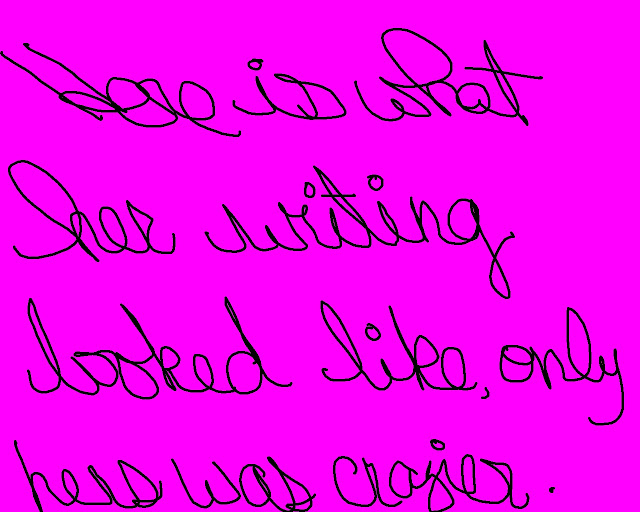 Here is what
her writing
looked like, only
hers was crazier.